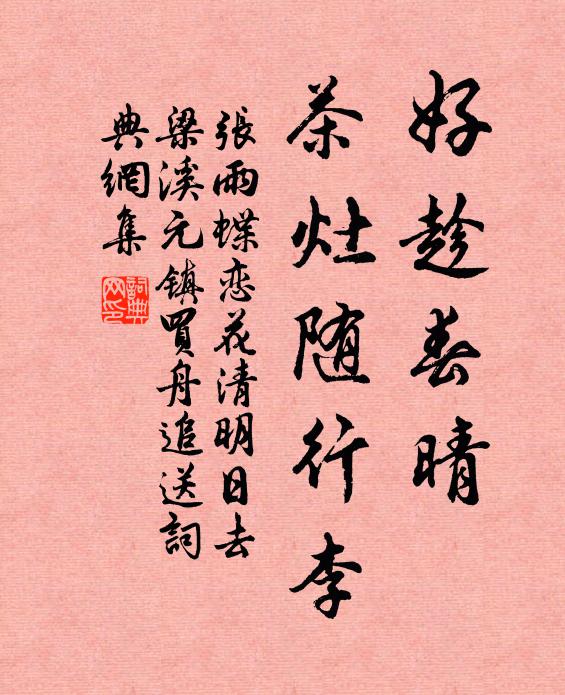 好趁春晴
茶灶随行李
張雨蝶恋花清明日去
梁溪元镇買舟追送詞
典網集
詞典网印